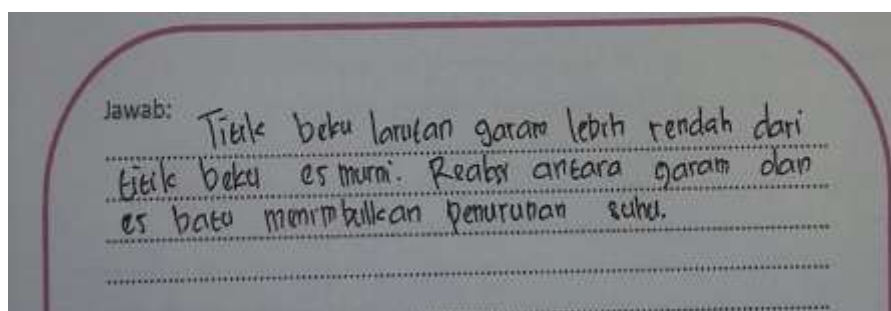 Jawab:
Titik beku larutan garam lebih rendah dari
titik beku es murni. Reaksi antara garam dan
es batu menimbulkan penurunan suhu.